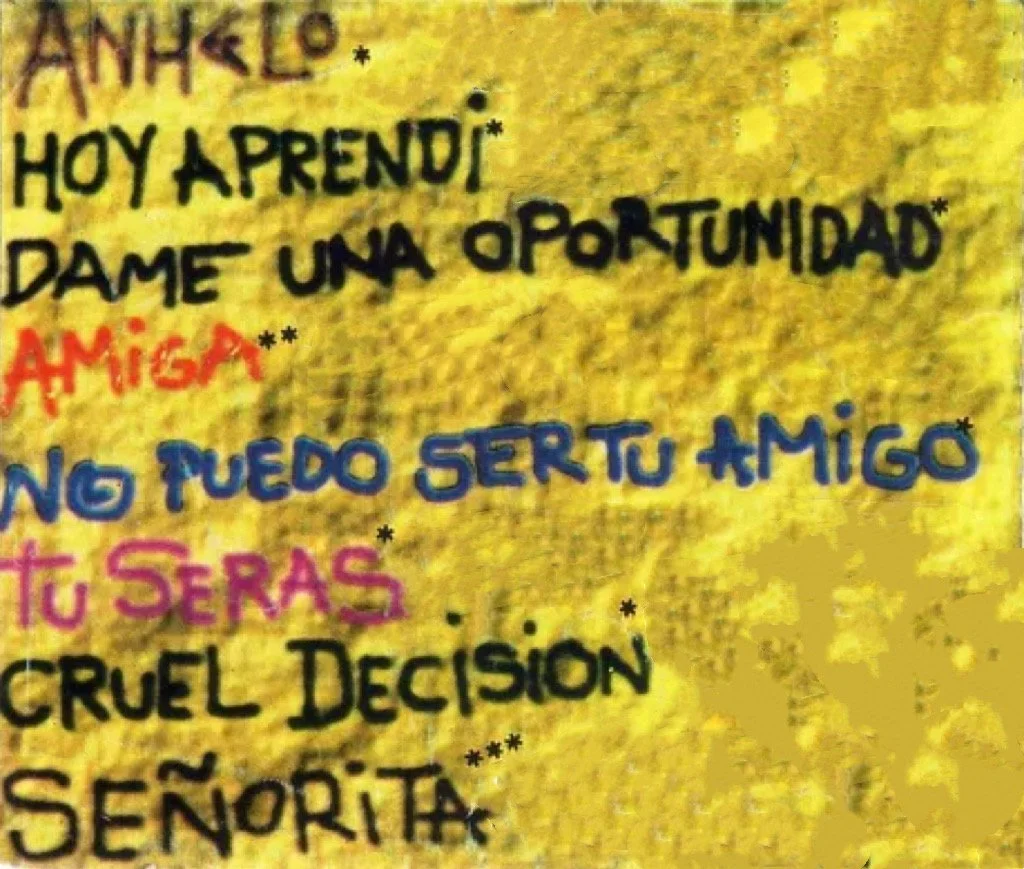 ANHELO*
HOY APRENDi*
DAME UNA OPORTUNIDAD*
AMiGA**
NO PUEDO SER TU AMiGO*
TU SERAS*
CRUEL DECiSiON*
SEÑORiTA***